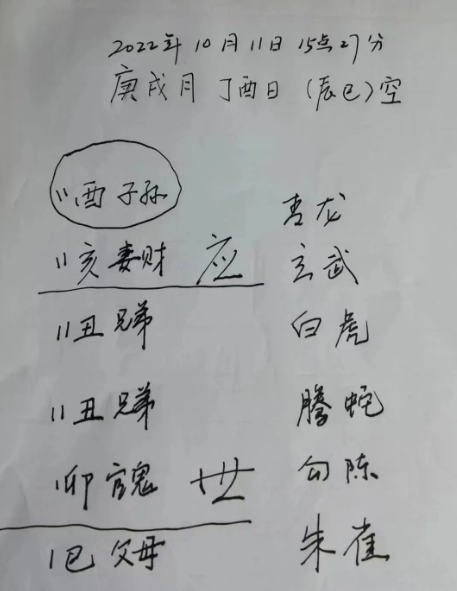 2022年10月11日 15点27分
庚戌月 丁酉日 (辰巳)空
〃酉子孙 青龙
〃亥妻财 应 玄武
〃丑兄弟 白虎
〃丑兄弟 腾蛇
丨卯官鬼 世 勾陈
丨巳父母 朱雀